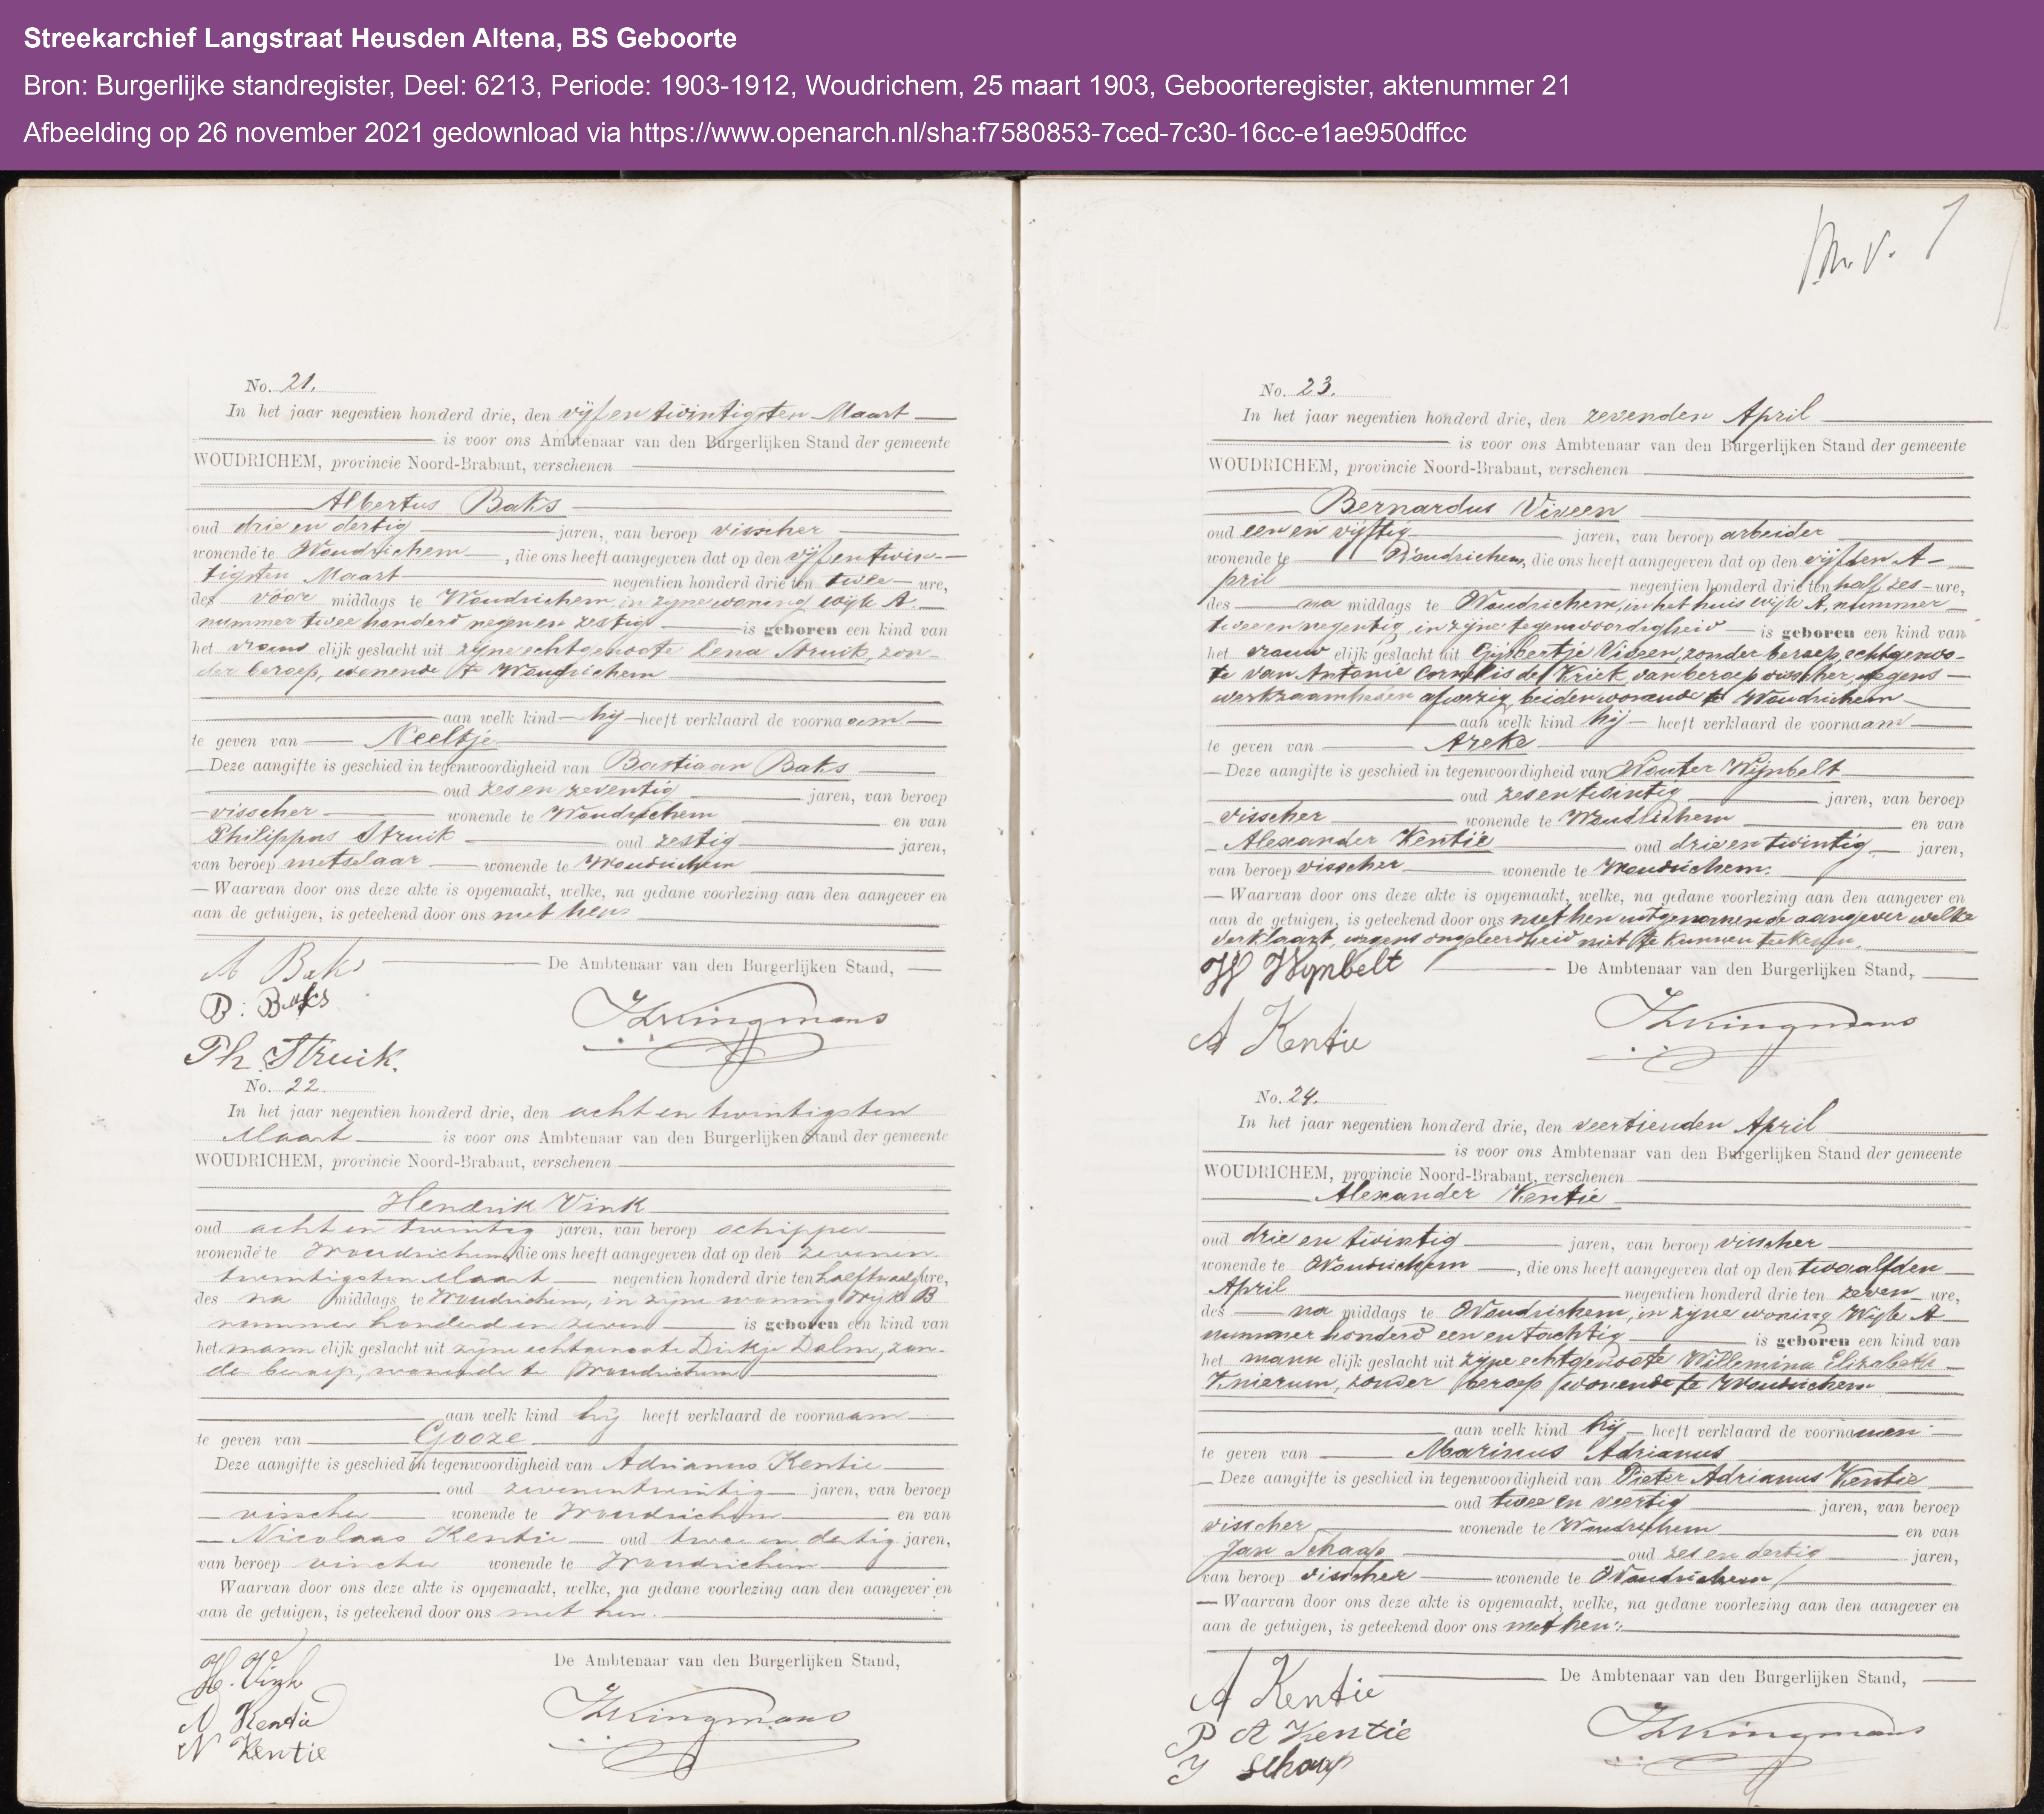 Streekarchief Langstraat Heusden Altena, BS Geboorte
Bron: Burgerlijke standregister, Deel: 6213, Periode: 1903-1912, Woudrichem, 25 maart 1903, Geboorteregister, aktenummer 21
Afbeelding op 26 november 2021 gedownload via https://www.openarch.nl/sha:f7580853-7ced-7c30-16cc-e1ae950dffcc
No. 21.
In het jaar negentien honderd drie, den vijf en twintigsten Maart
is voor ons Ambtenaar van den Burgerlijken Stand der gemeente
WOUDRICHEM, provincie Noord-Brabant, verschenen
Albertus Baks
oud drie en dertig jaren, van beroep visscher
wonende te Woudrichem, die ons heeft aangegeven dat op den vijf en twin-
tigsten Maart negentien honderd drie ten twee ure,
des voor middags te Woudrichem, in zijne woning wijk A.
nummer twee honderd negen en zestig is geboren een kind van
het vrouwelijk geslacht uit zijne echtgenoote Lena Struik, zon-
der beroep, wonende te Woudrichem
aan welk kind hij heeft verklaard de voornaam
te geven van Neeltje
Deze aangifte is geschied in tegenwoordigheid van Bastiaan Baks
oud zes en zeventig jaren, van beroep
visscher wonende te Woudrichem en van
Philippus Struik oud zestig jaren,
van beroep metselaar wonende te Woudrichem
Waarvan door ons deze akte is opgemaakt, welke, na gedane voorlezing aan den aangever en
aan de getuigen, is geteekend door ons met hen.
A Baks De Ambtenaar van den Burgerlijken Stand,
B: Baks
Kingmans
Ph. Struik.
No. 22.
In het jaar negentien honderd drie, den acht en twintigsten
Maart is voor ons Ambtenaar van den Burgerlijken Stand der gemeente
WOUDRICHEM, provincie Noord-Brabant, verschenen
Hendrik Vink
oud acht en twintig jaren, van beroep schipper
wonende te Woudrichem, die ons heeft aangegeven dat op den zevenen
twintigsten Maart negentien honderd drie ten half twaalf ure,
des na middags te Woudrichem, in zijne woning Wijk B
nummer honderd en zeven is geboren een kind van
het mannelijk geslacht uit zijne echtgenoote Dirkje Dalm, zon-
der beroep, wonende te Woudrichem
aan welk kind hij heeft verklaard de voornaam
te geven van Gooze
Deze aangifte is geschied in tegenwoordigheid van Adrianus Kentie
oud zevenentwintig jaren, van beroep
visscher wonende te Woudrichem en van
Nicolaas Kentie oud twee en dertig jaren,
van beroep visscher wonende te Woudrichem
Waarvan door ons deze akte is opgemaakt, welke, na gedane voorlezing aan den aangever en
aan de getuigen, is geteekend door ons met hen.
De Ambtenaar van den Burgerlijken Stand,
H. Vink
A Kentie
Kingmans
N Kentie
7
No. 23.
In het jaar negentien honderd drie, den zevenden April
is voor ons Ambtenaar van den Burgerlijken Stand der gemeente
WOUDRICHEM, provincie Noord-Brabant, verschenen
Bernardus Viveen
oud een en vijftig jaren, van beroep arbeider
wonende te Woudrichem, die ons heeft aangegeven dat op den vijften A-
pril negentien honderd drie ten half zes ure,
des na middags te Woudrichem, in het huis wijk A, nummer
twee en negentig, in zijne tegenwoordigheid is geboren een kind van
het vrouwelijk geslacht uit Gijsbertje Viveen, zonder beroep, echtgenoo-
te van Antonie Cornelis de Kriek, van beroep visscher, wegens
werkzaamheden afwezig, beiden wonende te Woudrichem
aan welk kind hij heeft verklaard de voornaam
te geven van Areke
Deze aangifte is geschied in tegenwoordigheid van Wouter Wijnbelt
oud zes en twintig jaren, van beroep
visscher wonende te Woudrichem en van
Alexander Kentie oud drie en twintig jaren,
van beroep visscher wonende te Woudrichem.
Waarvan door ons deze akte is opgemaakt, welke, na gedane voorlezing aan den aangever en
aan de getuigen, is geteekend door ons met hen uitgenomen de aangever welke
verklaart, wegens ongeleerdheid niet te kunnen teekenen.
W Wijnbelt De Ambtenaar van den Burgerlijken Stand,
A Kentie Kingmans
No. 24.
In het jaar negentien honderd drie, den veertienden April
is voor ons Ambtenaar van den Burgerlijken Stand der gemeente
WOUDRICHEM, provincie Noord-Brabant, verschenen
Alexander Kentie
oud drie en twintig jaren, van beroep visscher
wonende te Woudrichem, die ons heeft aangegeven dat op den twaalfden
April negentien honderd drie ten zeven ure,
des na middags te Woudrichem, in zijne woning Wijk A
nummer honderd een en tachtig is geboren een kind van
het mannelijk geslacht uit zijne echtgenoote Willemina Elizabeth
Knierum, zonder beroep wonende te Woudrichem
aan welk kind hij heeft verklaard de voornamen
te geven van Marinus Adrianus
Deze aangifte is geschied in tegenwoordigheid van Pieter Adrianus Kentie
oud twee en veertig jaren, van beroep
visscher wonende te Woudrichem en van
Jan Schaap oud zes en dertig jaren,
van beroep visscher wonende te Woudrichem
Waarvan door ons deze akte is opgemaakt, welke, na gedane voorlezing aan den aangever en
aan de getuigen, is geteekend door ons met hen.
A Kentie De Ambtenaar van den Burgerlijken Stand,
P A Kentie Kingmans
J Schaap